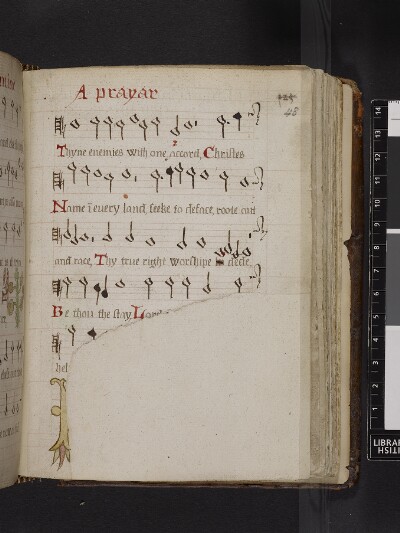 A prayar
48
Thyne enemies with one accord, Christes
Name i every land, seeke to deface, roote out
and race, Thy true right worshipe
Be thou the stay Lord
hel
14
13
12
11
10
9
8
7
6
5
4
3
2
1
LIBRAR
HSITI